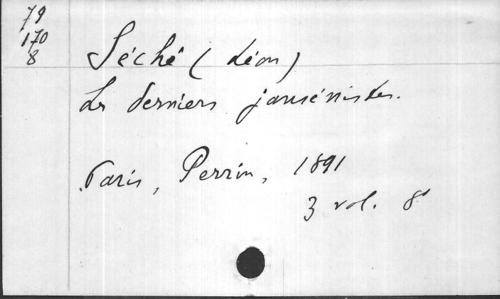 79
170
8
Séché (Léon)
Les derniers jansénistes.
Paris, Perrin, 1891
3 vol. 8°